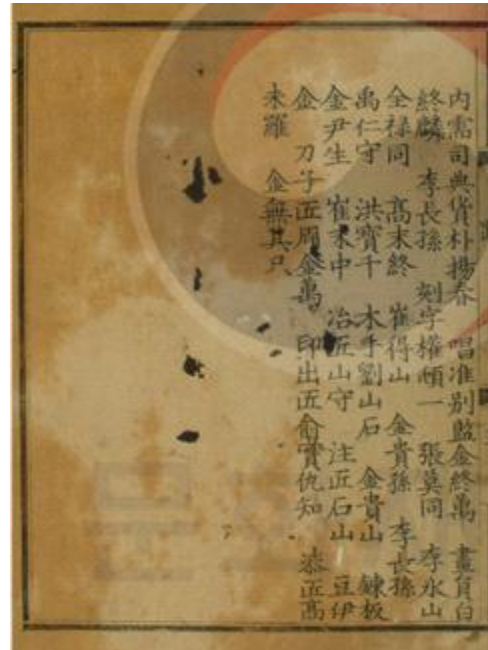 內需司典貨朴揚春 唱准别監金終萬 畫員白
終麟 李長孫 刻字權頓一 張莫同 李永山
全禄同 高末終 崔得山 金貴孫 李長孫
禹仁守 洪寳千 木手劉山石 金貴山 錬板
金尹生 崔末中 冶匠山守 注匠石山 豆伊
金 刀子匠周金萬 印出匠俞實仇知 漆匠高
未羅 金無其只